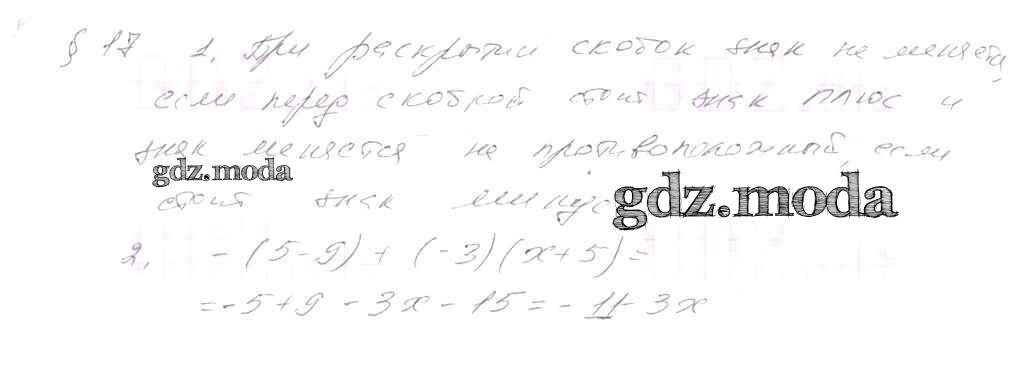 § 17 1. При раскрытии скобок знак не меняется,
если перед скобкой стоит знак плюс и
знак меняется на противоположный, если
gdz.moda
стоит знак минус
gdz.moda
2. - (5-9) + (-3)(x+5) =
= -5+9 - 3x - 15 = - 11 - 3x